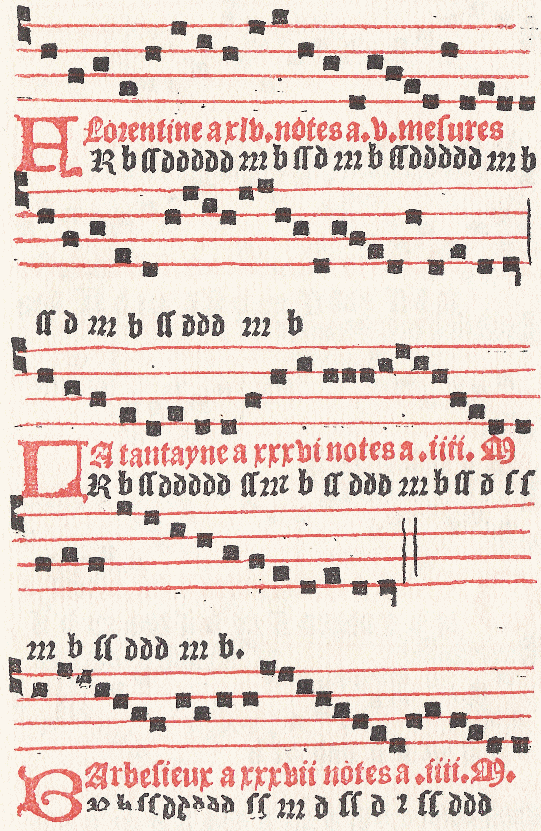 FLorentine a xlv. notes a .v. meſures
R b ſſ ddddd m b ſſ d m b ſſ ddddd m b
ſſ d m b ſſ ddd m b
LA tantayne a xxxvi notes a .iiii. M
R b ſſ ddddd ſſ m b ſſ ddd m b ſſ d ſſ
m b ſſ ddd m b.
BArbeſieux a xxxvii notes a .iiii. M.
R b ſſ drddd ſſ m d ſſ d r ſſ ddd